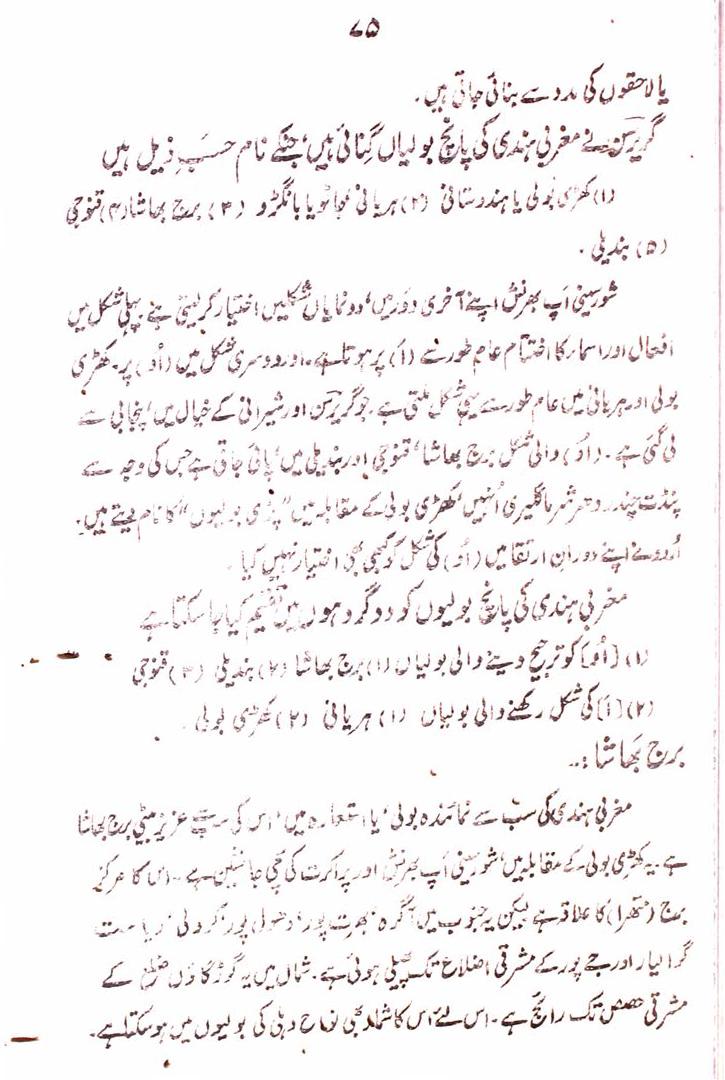 ۷۵
یا لاحقوں کی مدد سے بنائی جاتی ہیں۔
گریرسن نے مغربی ہندی کی پانچ بولیاں گنائی ہیں، جنکے نام حسبِ ذیل ہیں
(۱) کھڑی بولی یا ہندوستانی (۲) ہریانی، جاٹو یا بانگڑو (۳) برج بھاشا (۴) قنوجی
(۵) بندیلی۔
شورسینی اَپ بھرنش اپنے آخری دَور میں، دو نمایاں شکلیں اختیار کر لیتی ہے پہلی شکل میں
افعال اور اسمار کا اختتام عام طور سے (اَ) پر ہوتا ہے۔ اور دوسری شکل میں (اُو) پر۔ کھڑی
بولی اور ہریانی میں عام طور سے یہی شکل ملتی ہے۔ جو گریرسن اور شیرانی کے خیال میں، پنجابی سے
لی گئی ہے۔ (اُو) والی شکل برج بھاشا، قنوجی اور بندیلی میں، پائی جاتی ہے جس کی وجہ سے
پنڈت چندر دھر شرما گلیری اُنہیں، کھڑی بولی کے مقابلہ میں "پڑی بولیوں" کا نام دیتے ہیں۔
اُردو نے اپنے دورانِ ارتقا میں (اُو) کی شکل کو کبھی بھی اختیار نہیں کیا۔
مغربی ہندی کی پانچ بولیوں کو دو گروہوں میں تقسیم کیا جا سکتا ہے
(۱) [اُو] کو ترجیح دینے والی بولیاں (۱) برج بھاشا (۲) بندیلی (۳) قنوجی
(۲) [اَ] کی شکل رکھنے والی بولیاں (۱) ہریانی (۲) کھڑی بولی۔
برج بھاشا:۔۔
مغربی ہندی کی سب سے نمائندہ بولی، یا استعارہ میں، اس کی سب سے عزیز بیٹی برج بھاشا
ہے۔ یہ کھڑی بولی کے مقابلہ میں، شورسینی اَپ بھرنش اور پراکرت کی سچی جانشین ہے۔ اس کا مرکز
برج (متھرا) کا علاقہ ہے لیکن یہ جنوب میں آگرہ، بھرت پور، دھولی پور، کرولی، ریاست
گوالیار اور جے پور کے مشرقی اضلاع تک پھیلی ہوئی ہے۔ شمال میں یہ گوڑگاؤں ضلع کے
مشرقی حصص تک رائج ہے۔ اس لئے اس کا شمار بھی نواحِ دہلی کی بولیوں میں ہو سکتا ہے۔